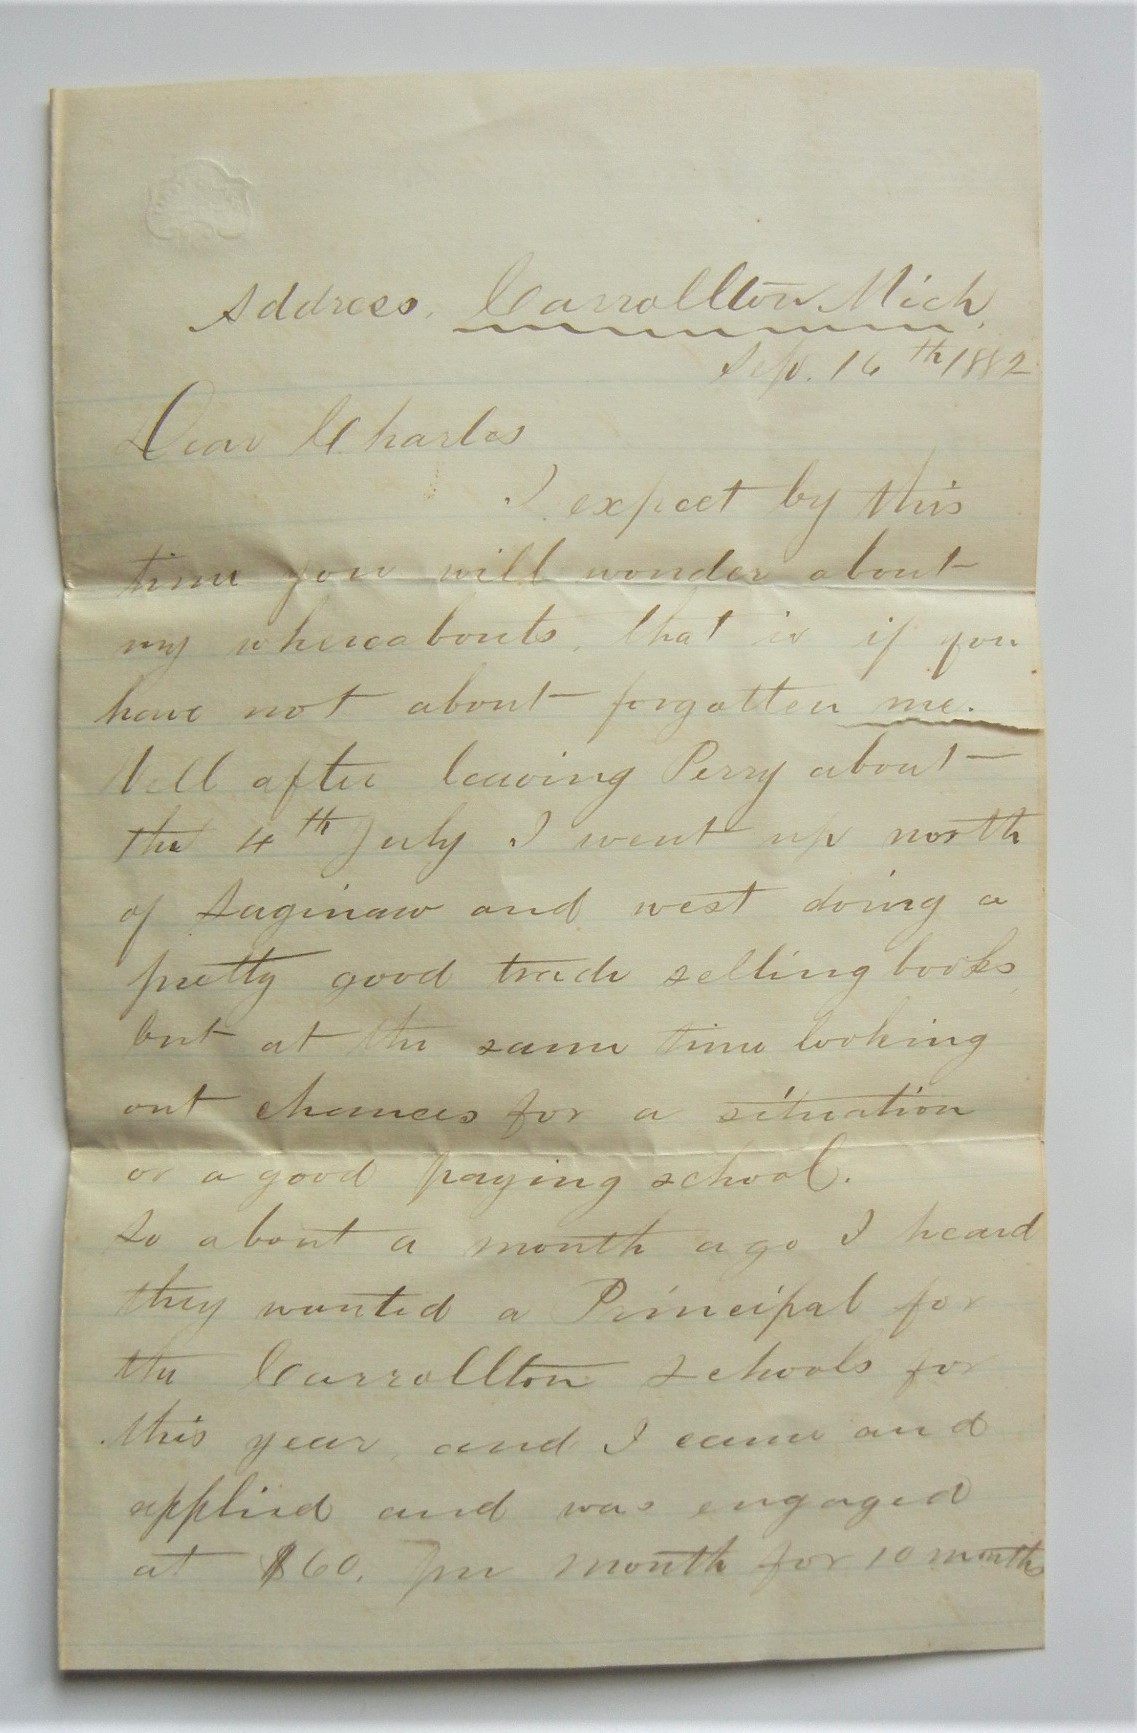 Address, Carrollton Mich,
Sep. 16th 1882
Dear Charles
I expect by this
time you will wonder about
my whereabouts, that is if you
have not about forgotten me.
Well after leaving Perry about
the 4th July I went up north
of Saginaw and west doing a
pretty good trade selling books,
but at the same time looking
out chances for a situation
or a good paying school.
So about a month ago I heard
they wanted a Principal for
the Carrollton Schools for
this year, and I came and
applied and was engaged
at $60. per month for 10 months